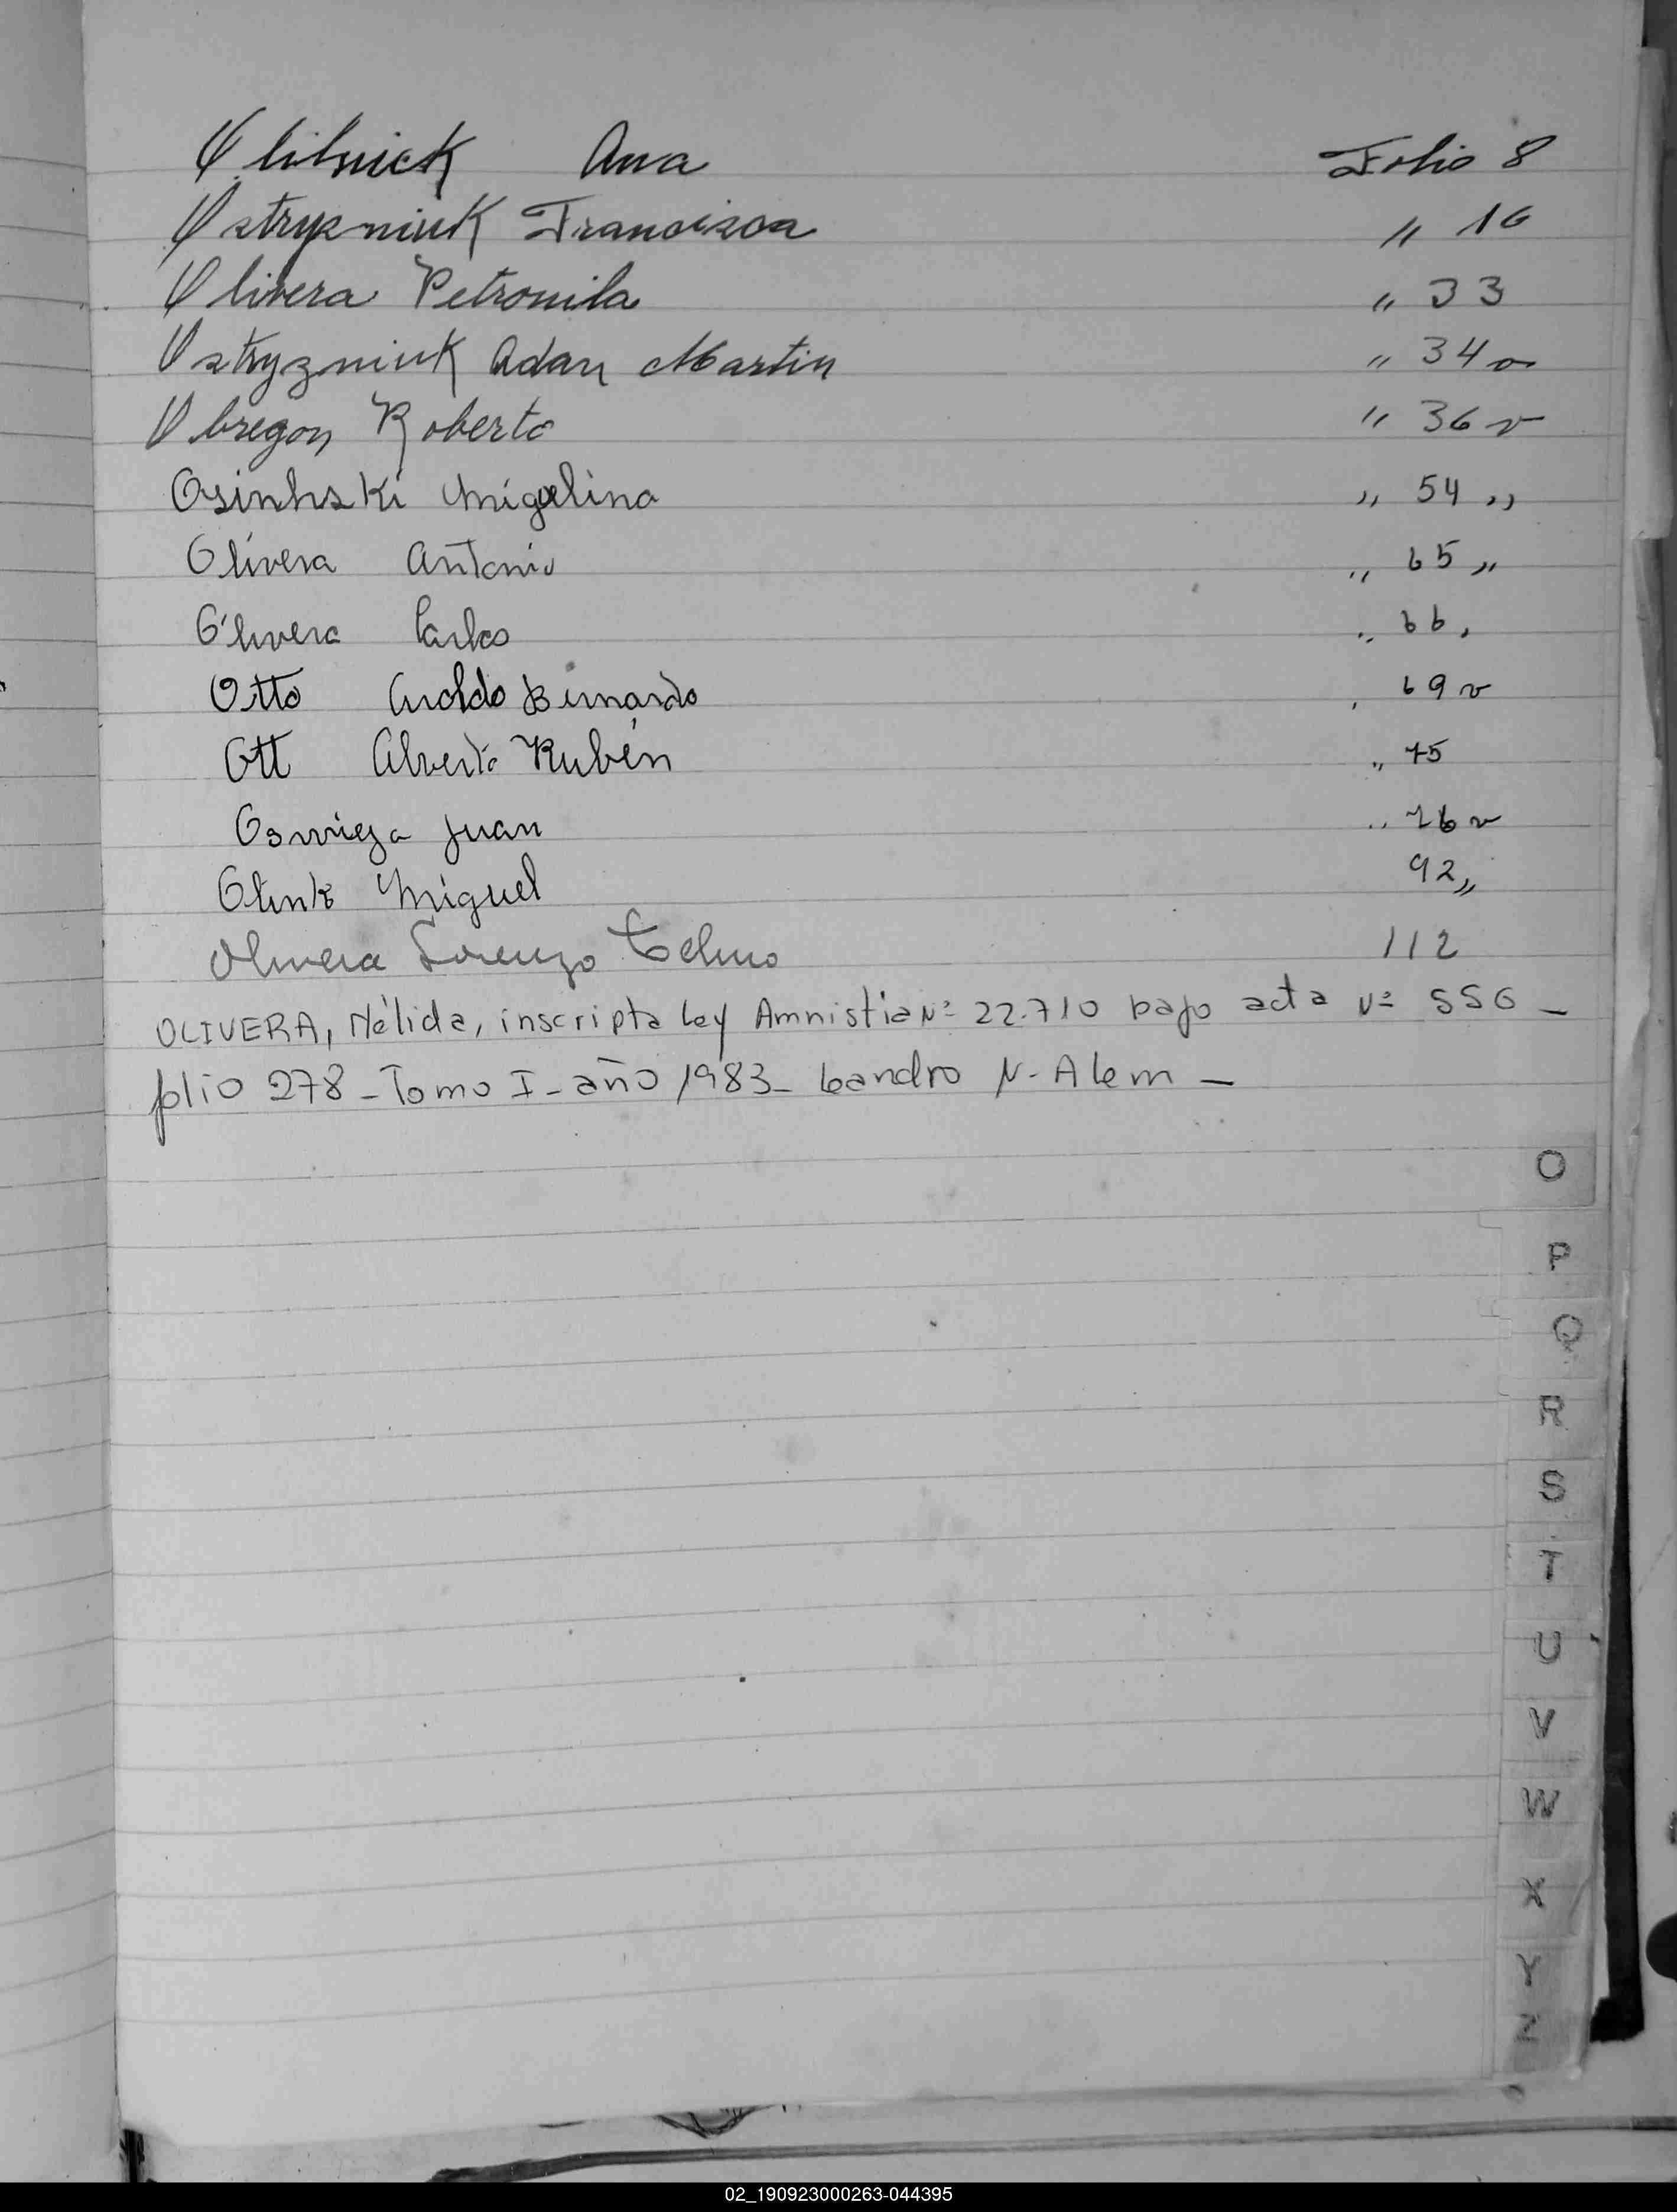 Olilnick Ana Folio 8
Ostryzniuk Francisca " 16
Olivera Petronila " 33
Ostryzniuk Adan Martin " 34 v
Obregon Roberto " 36 v
Osinhski Miguelina " 54 "
Olivera Antonio " 65 "
Olivera Carlos " 66 "
Otto Aroldo Bernardo " 69 v
Ott Alverto Rubén " 75
Juan " 76 v
Olink Miguel 92 "
Olivera Lorenzo Telmo 112
OLIVERA, Nélida, inscripta Ley Amnistia Nº 22.710 bajo acta Nº 556 -
folio 278 - Tomo I - año 1983 - Leandro N. Alem -
O
P
Q
R
S
T
U
V
W
X
Y
Z
02_190923000263-044395